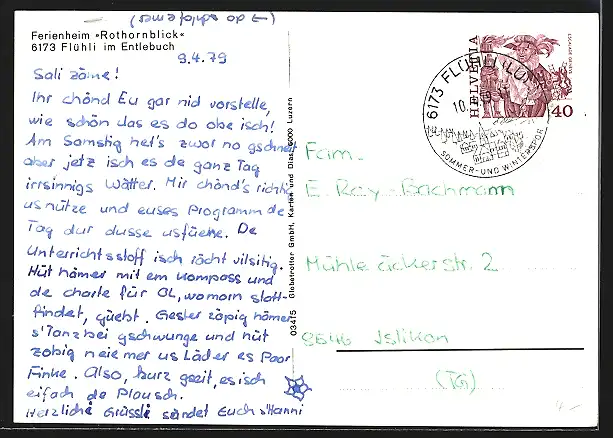 Ferienheim »Rothornblick«
6173 Flühli im Entlebuch
9.4.79
Sali zäme!
Ihr chönd Eu gar nid vorstelle,
wie schön das es do obe isch!
Am Samstig het's zwor no gschneit
aber jetz isch es de ganz Tag
irrsinnigs Wätter. Mir chönd's richtig
usnütze und euses Programm de
Tag dur dusse usfüehre. De
Unterrichtsstoff isch rächt vilsitig.
Hüt hämer mit em Kompass und
de Charte für OL, wo morn statt-
findet, güebt. Gester z'obig hämer
s'Tanzbei gschwunge und hüt
zobig neie mer us Läder es Poor
Finke. Also, kurz gseit, es isch
eifach de Plousch.
Herzlichi Grüssli sändet Euch s'Hanni
03415 Globetrotter GmbH, Karten und Dias, 6000 Luzern
HELVETIA
ESCALADE GENÈVE
40
6173 FLÜHLI (LUZERN)
10.
SOMMER- UND WINTERSPORT
Fam.
E. Rey-Bachmann
Mühleäckerstr. 2
8546 Islikon
(TG)